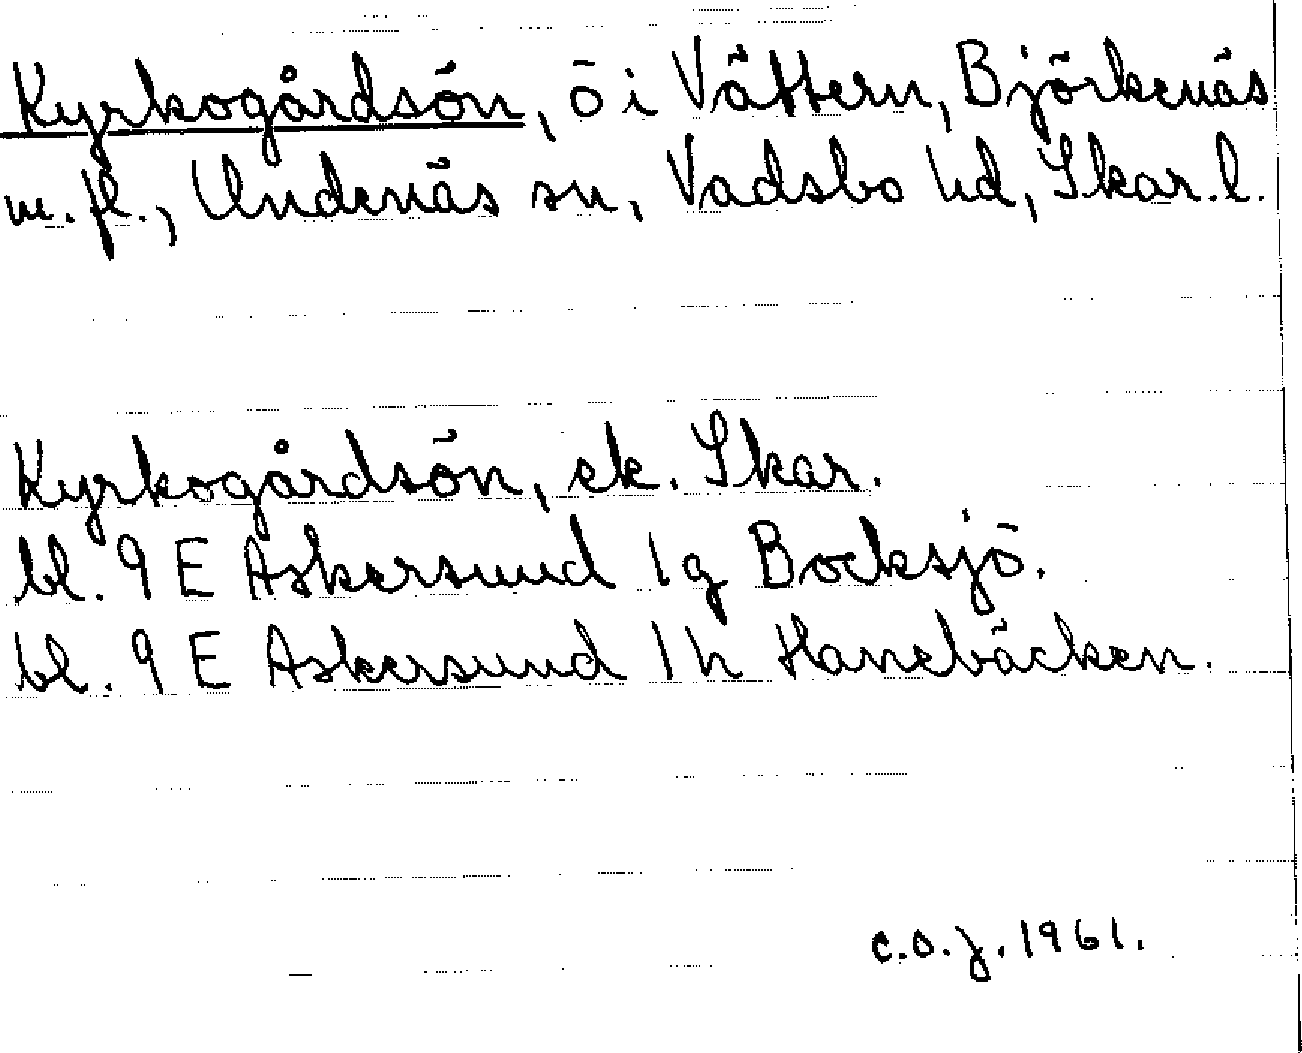 Kyrkogårdsön, ö i Vättern, Björkenäs
m.fl., Undenäs sn, Vadsbo hd, Skar.l.
Kyrkogårdsön, ek. Skar.
bl. 9 E Askersund 1g Bocksjö.
bl. 9 E Askersund 1h Hanebäcken.
C.O.J. 1961.